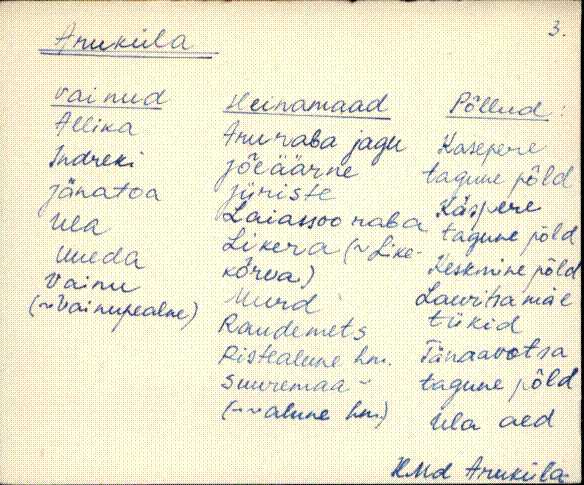 3.
Aruküla
Vainud
Allika
Indreki
Jänatoa
Ula
Uueda
Vainu
(~Vainupealne)
Heinamaad
Aruraba jagu
Jõeäärne
Jüriste
Laiassoo raba
Likera (~Like-
kõrva)
Murd
Raudemets
Ristealune hm.
Suuremaa ~
(~~alune hm.)
Põllud:
Kasepere
tagune põld
Käspere
tagune põld
Keskmine põld
Lauritsa mäe
tükid
Tänaavotsa
tagune põld
Ula aed
KMd Aruküla